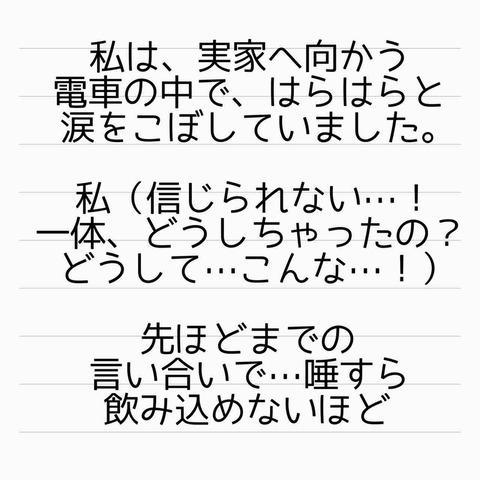 私は、実家へ向かう
電車の中で、はらはらと
涙をこぼしていました。
私（信じられない…！
一体、どうしちゃったの？
どうして…こんな…！）
先ほどまでの
言い合いで…唾すら
飲み込めないほど